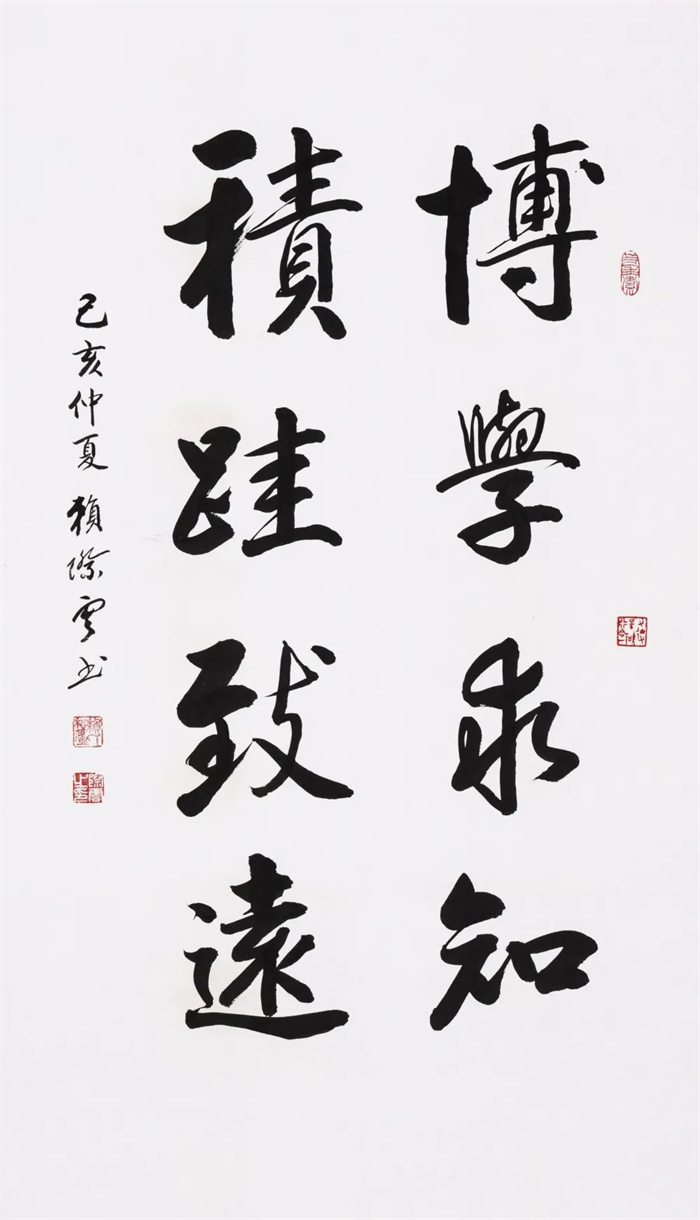 博學求知
積跬致遠
己亥仲夏賴際雲书